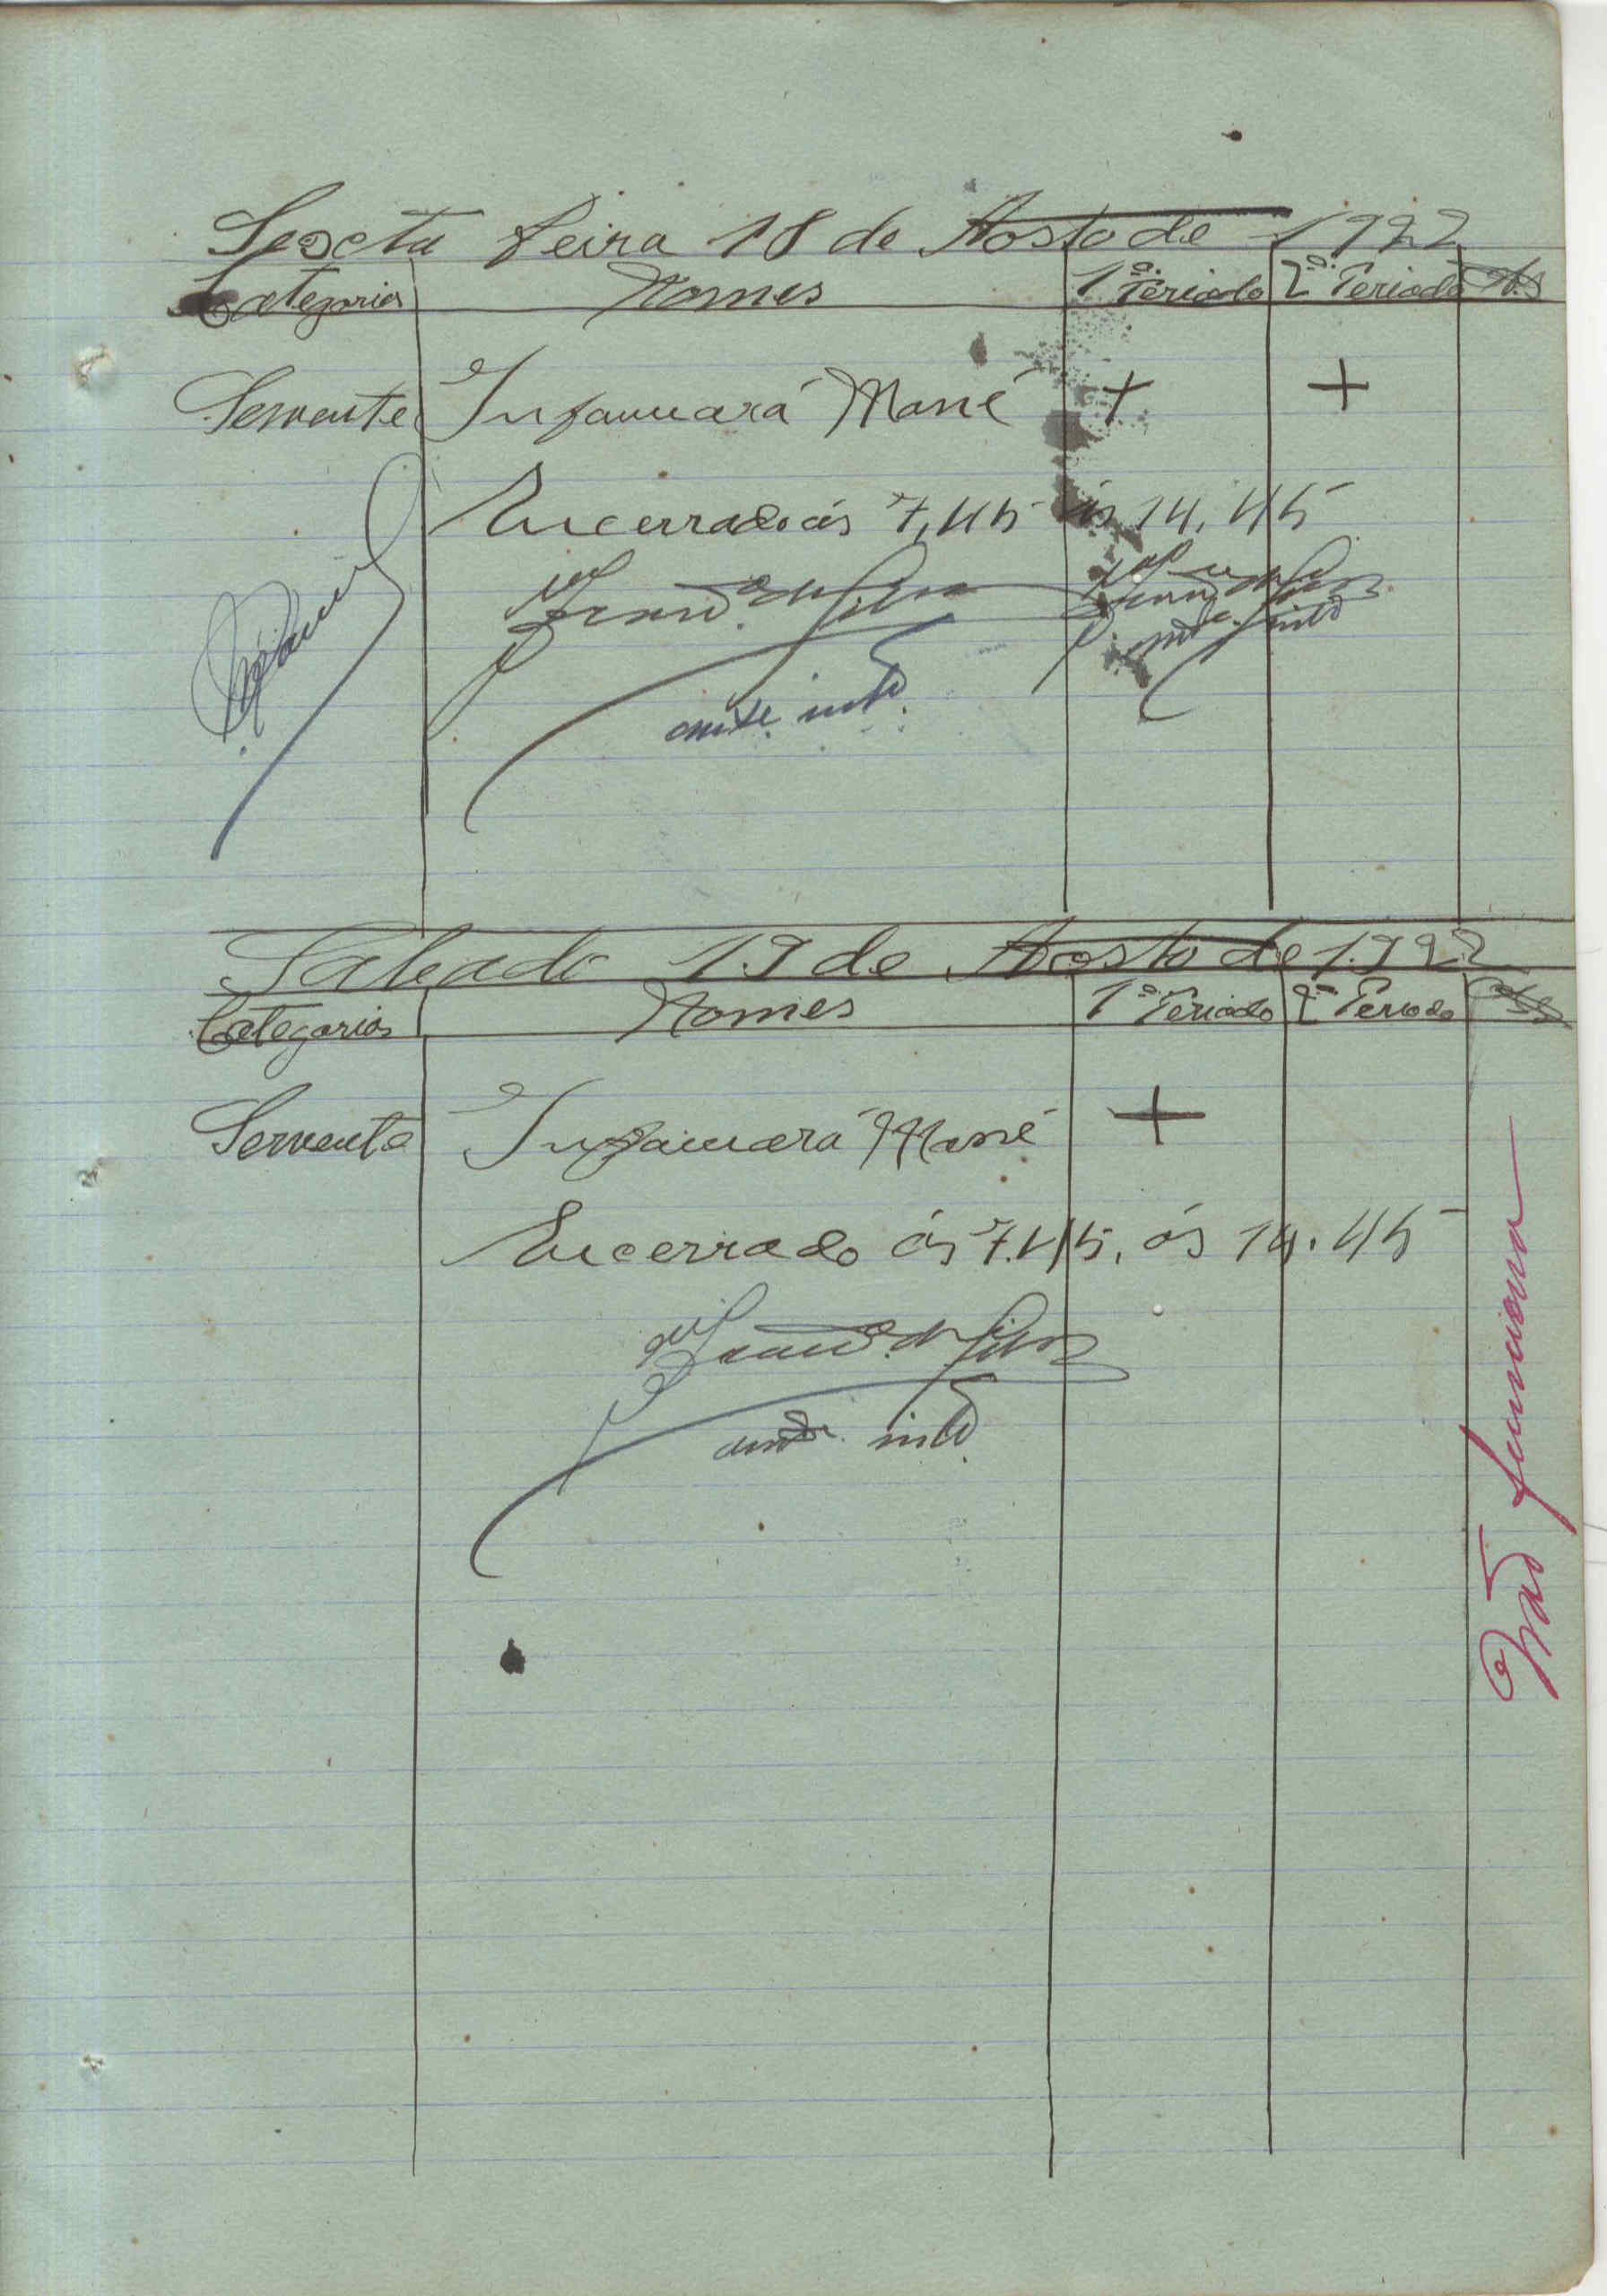 Sexcta feira 18 de Agosto de 1922
Categorias Nomes 1º Periodo 2º Periodo Obs
Servente Infamará Mané + +
Encerrado ás 7,45 ás 14,45
Silva
Silva
Sabado 19 de Agosto de 1922
Categorias Nomes 1º Periodo 2º Periodo Obs
Servente Infamará Mané +
Encerrado ás 7.45, ás 14.45
Silva
Não funciona